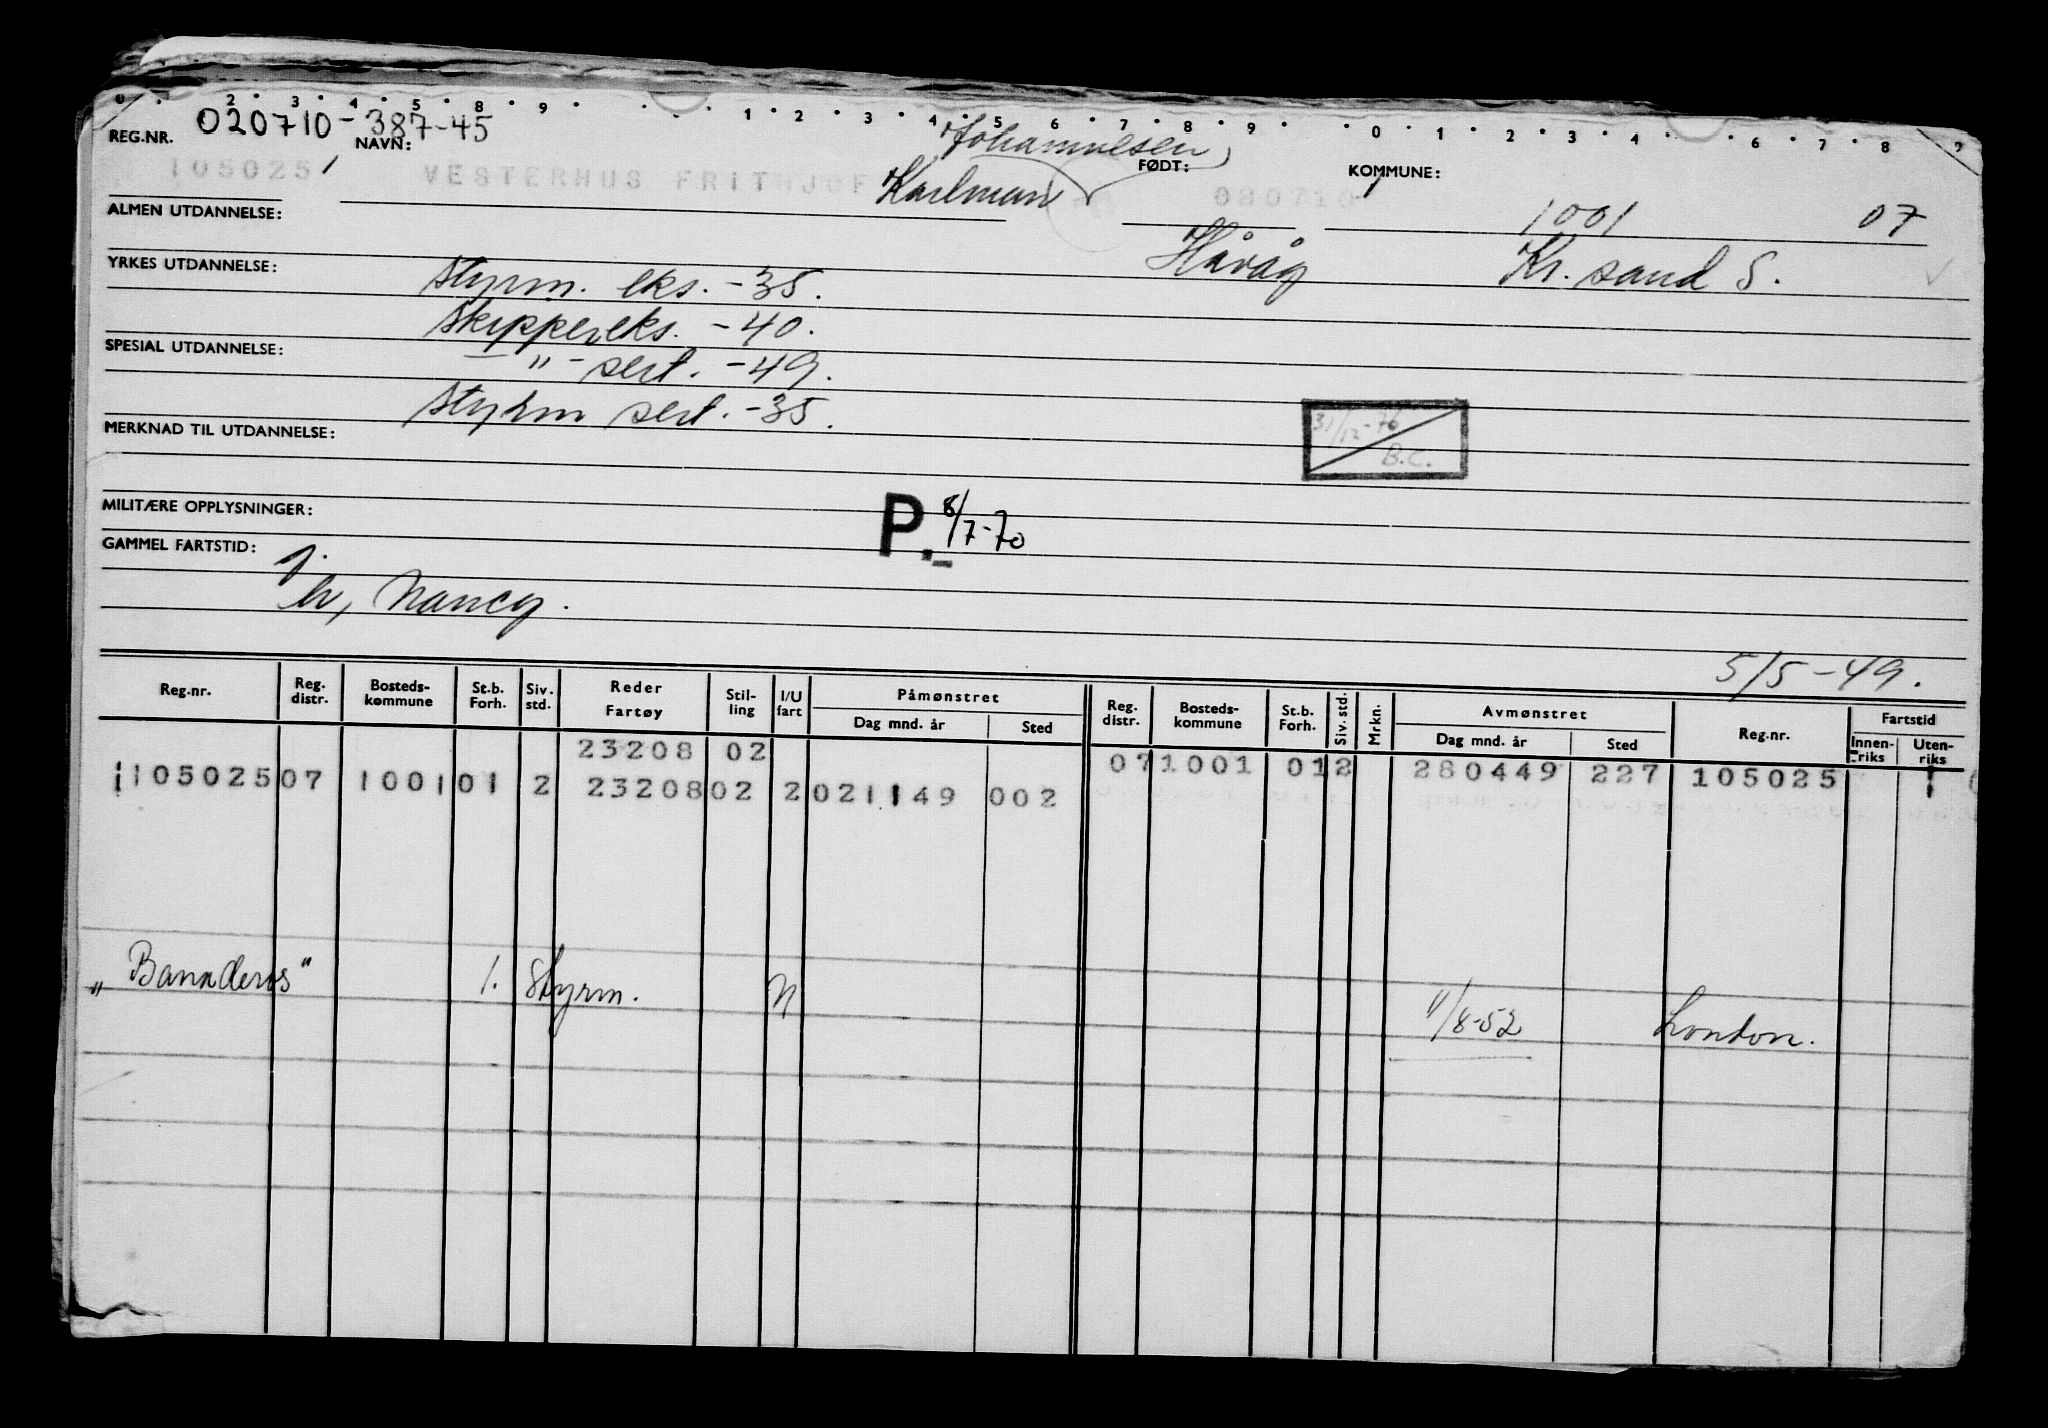 0 2 3 4 5 8 9 1 2 3 4 5 6 7 8 9 0 1 2 3 4 6 7 8 9
REG.NR. 020710-387-45 NAVN: Johannesen, FØDT: KOMMUNE:
105025 VESTERHUS FRITHJOF Karlman 080710
ALMEN UTDANNELSE: 1001 07
Håvåg Kr. sand S.
YRKES UTDANNELSE: styrm. eks. -35.
skippereks. -40.
SPESIAL UTDANNELSE: —"— sert. -49.
styrm sert. -35.
MERKNAD TIL UTDANNELSE:
31/12-76
B.C.
MILITÆRE OPPLYSNINGER: P. 8/7-70
GAMMEL FARTSTID:
h, Nancy.
5/5-49.
Reg.nr. Reg. distr. Bosteds- kommune St.b. Forh. Siv. std. Reder Fartøy Stil- ling I/U fart Påmønstret Dag mnd. år Sted Reg. distr. Bosteds- kommune St.b. Forh. Siv. std. Mrkn. Avmønstret Dag mnd. år Sted Reg.nr. Fartstid Innen- riks Uten- riks
23208 02 07 1001 01 2 280449 227 105025
105025 07 1001 01 2 23208 02 2 021149 002
"Banaderos" 1. Styrm. N 11/8-52 London.